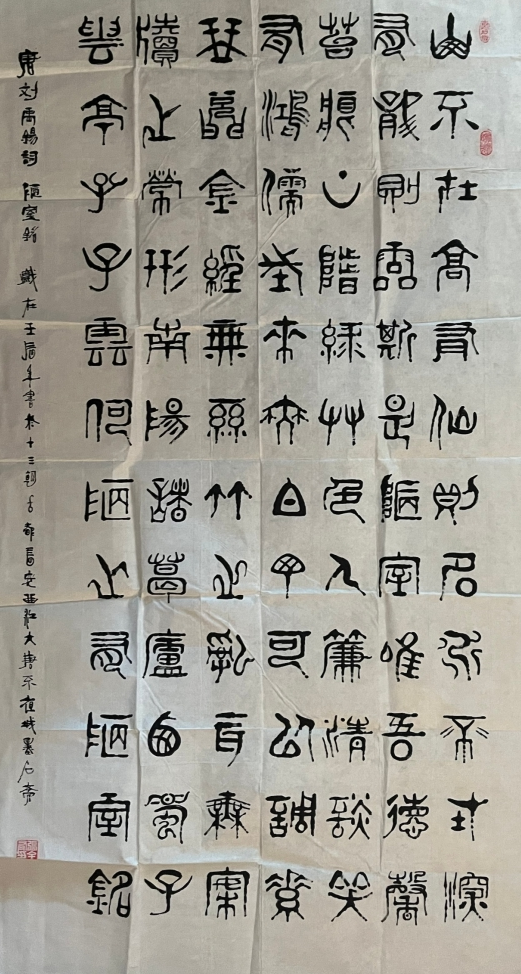 山不在高有仙則名水不在深
有龍則靈斯是陋室唯吾德馨
苔痕上階綠艸色入簾清談笑
有鴻儒往來無白丁可以調素
琴閱金經無絲竹之亂耳無案
牘之勞形南陽諸葛廬西蜀子
雲亭孔子雲何陋之有陋室銘
唐刘禹錫詞 陋室銘 歲在壬辰年書於十三朝古都長安曲江大唐不夜城墨石齋